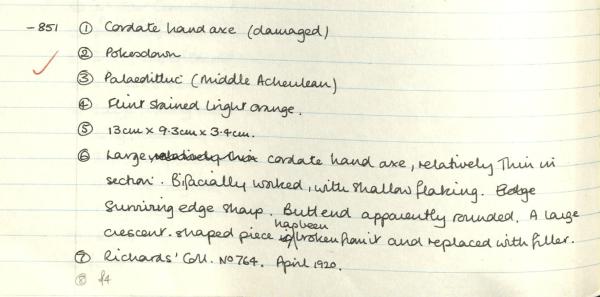 -851 ① Cordate hand axe (damaged)
② Pokesdown
③ Palaeolithic (Middle Acheulean)
④ Flint stained bright orange.
⑤ 13cm x 9.3cm x 3.4cm.
⑥ Large, relatively thin cordate hand axe, relatively thin in
section. Bifacially worked, with shallow flaking. Edge
Surviving edge sharp. Butt end apparently rounded. A large
has been
crescent-shaped piece is broken from it and replaced with filler.
⑦ Richards' Coll. No 764. April 1920.
⑧ f4